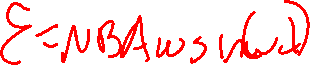 ε=NBAwsin(wt)